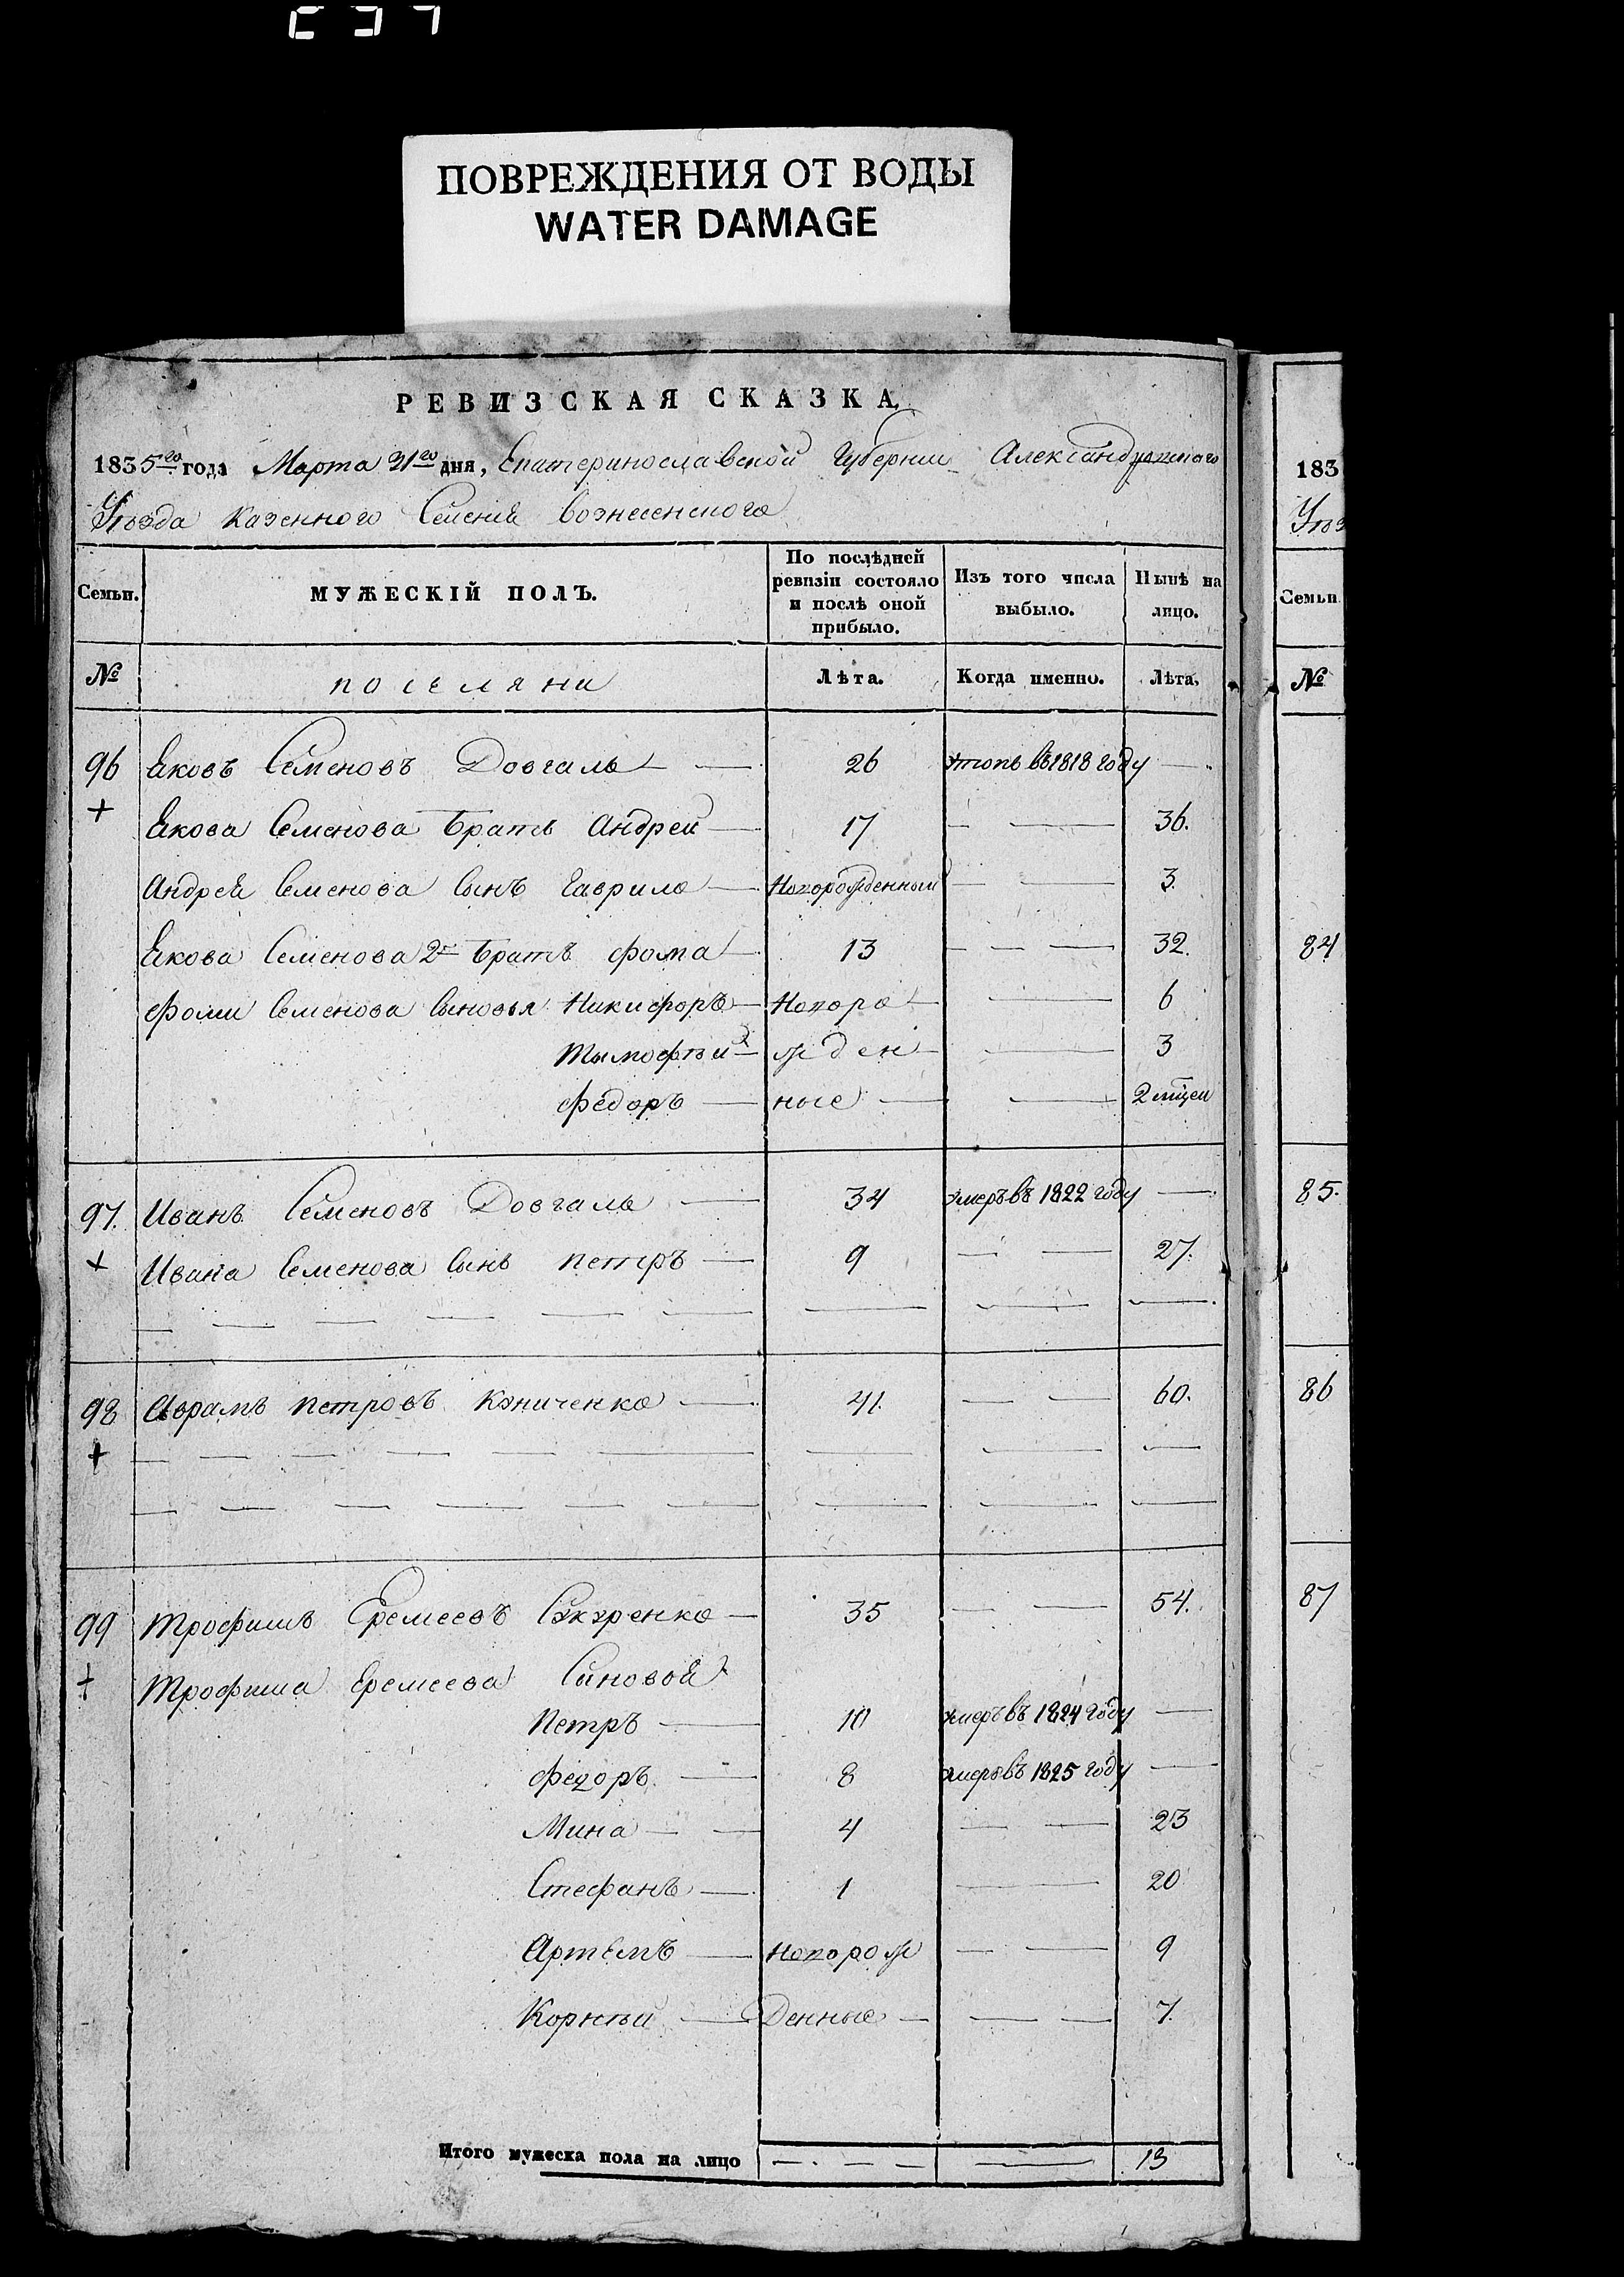 ПОВРЕЖДЕНИЯ ОТ ВОДЫ
WATER DAMAGE
РЕВИЗСКАЯ СКАЗКА
1835го года Марта 31го дня, Екатеринославской Губернии Александровского
Уезда казенного Селения Вознесенского
Семьи. МУЖЕСКІЙ ПОЛЪ. По послѣдней ревизіи состояло и послѣ оной прибыло. Изъ того числа выбыло. Нынѣ на лицо.
№ поселяни Лѣта. Когда именно. Лѣта.
96 Яковъ Семеновъ Довгаль 26 утопъ въ 1818 году
+ Якова Семенова братъ Андрей 17 36.
Андрея Семенова сынъ Гаврило Новорожденный 3.
Якова Семенова 2й братъ Фома 13 32.
Фоми Семенова сыновья Никифоръ Новоро 6
Тымофѣй жден 3
Федоръ ные 2 мѣцеи
97. Иванъ Семеновъ Довгаль 34 умеръ въ 1822 году
+ Ивана Семенова сынъ Петръ 9 27.
98 Аврамъ Петровъ 41. 60.
+
99 Трофимъ Еремеевъ 35 54.
+ Трофима Еремеева Синовья
Петръ 10 умеръ въ 1824 году
Федоръ 8 умеръ въ 1825 году
Мина 4 23
Стефанъ 1 20
АртемъНоворож 9
Корнѣй Денные 7.
Итого мужеска пола на лицо 13
183
Уѣз
Семьи
№
84
85.
86
87